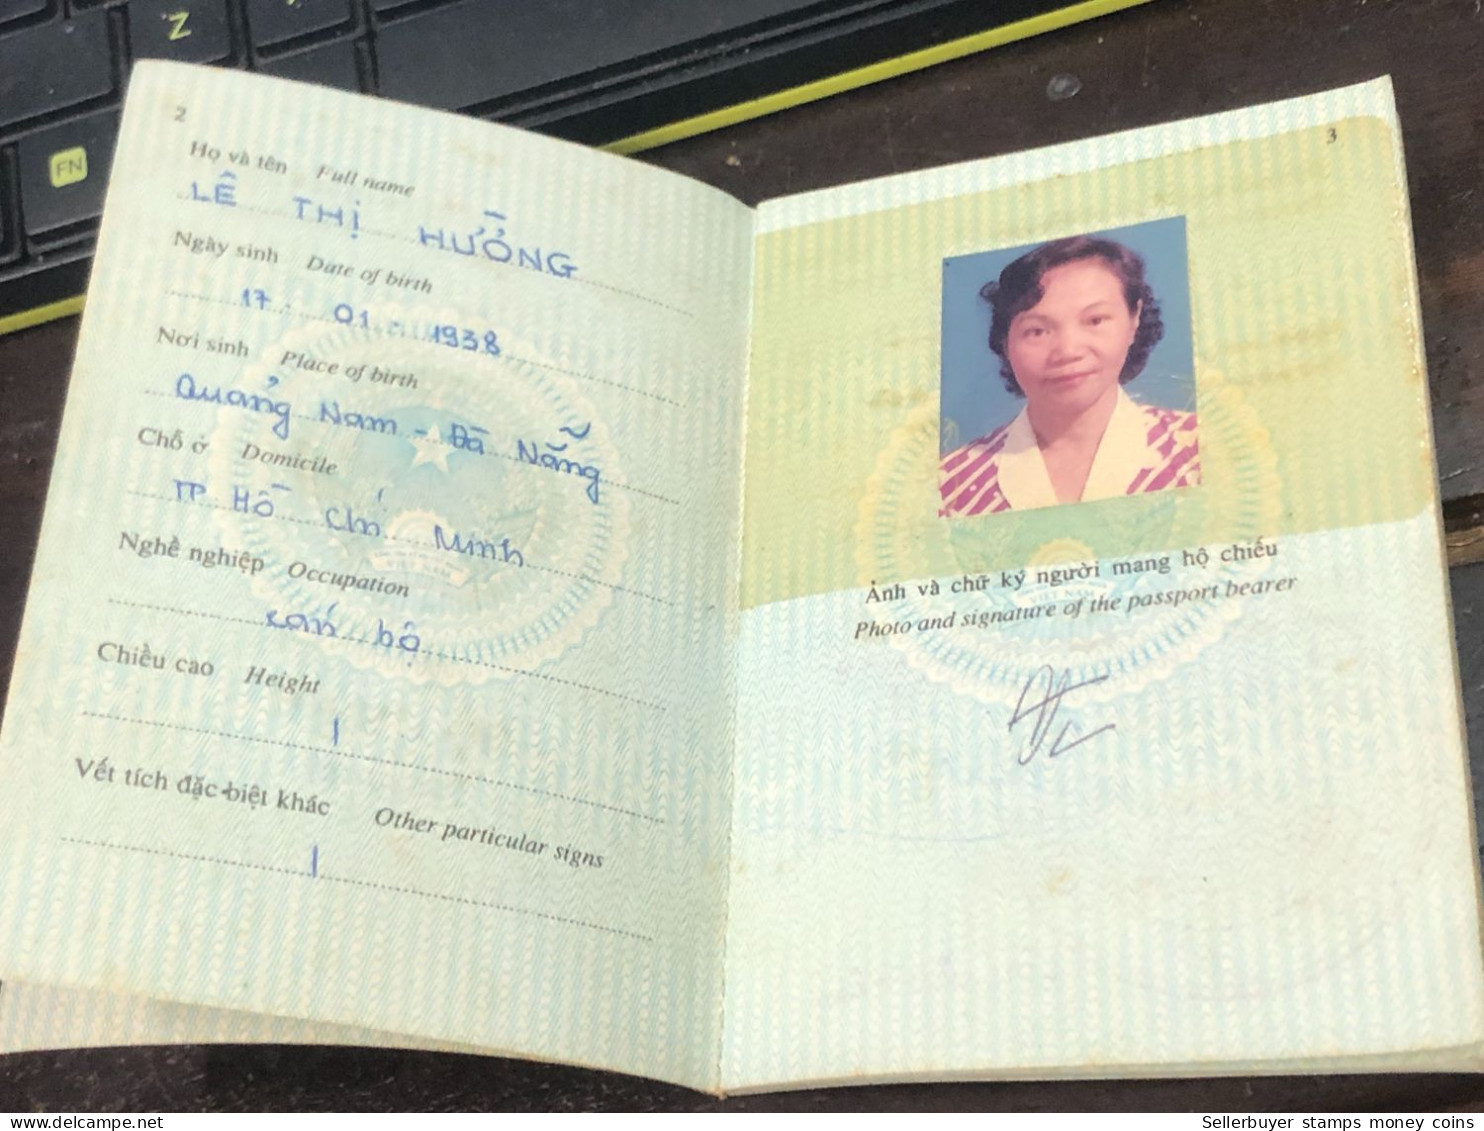 Z
FN
2
Họ và tên Full name
LÊ THỊ HƯỞNG
Ngày sinh Date of birth
17 - 01 - 1938
Nơi sinh Place of birth
Quảng Nam - Đà Nẵng
Chỗ ở Domicile
TP Hồ Chí Minh
Nghề nghiệp Occupation
cán bộ
Chiều cao Height
/
Vết tích đặc biệt khác Other particular signs
/
3
Ảnh và chữ ký người mang hộ chiếu
Photo and signature of the passport bearer
VIỆT NAM
Sellerbuyer stamps money coins